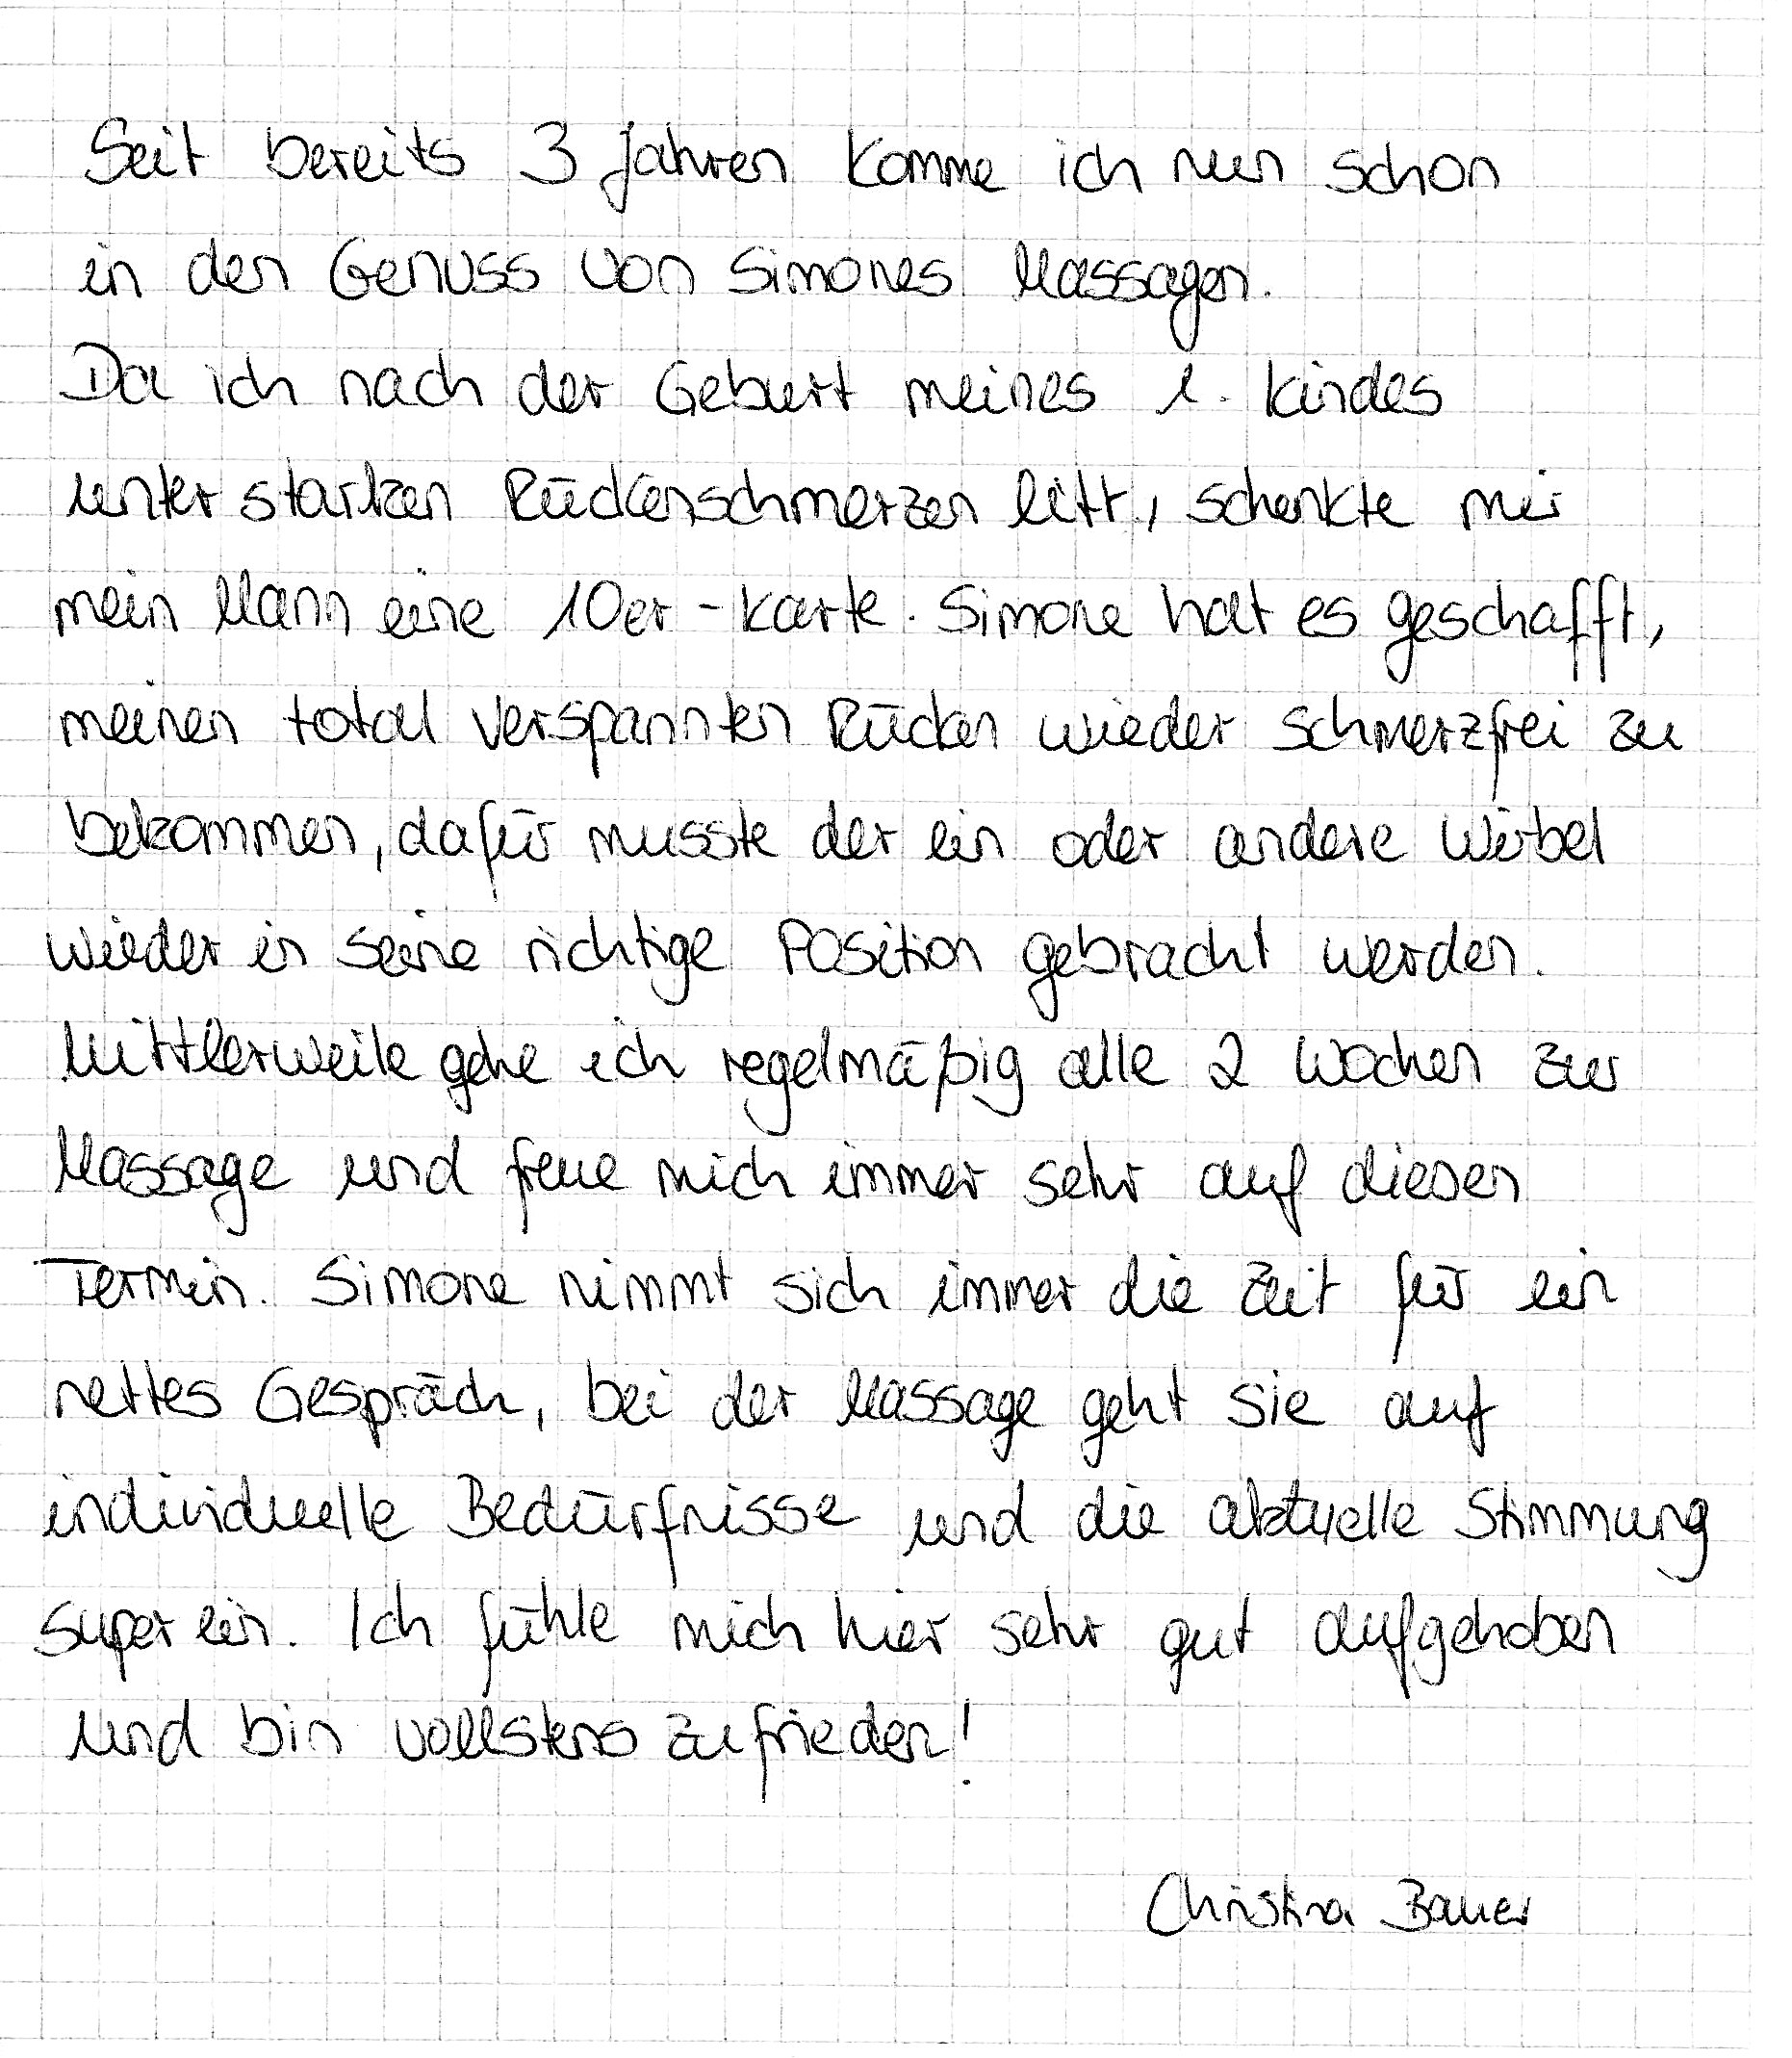 Seit bereits 3 Jahren komme ich nun schon
in den Genuss von Simones Massagen.
Da ich nach der Geburt meines 1. Kindes
unter starken Rückenschmerzen litt, schenkte mir
mein Mann eine 10er-Karte. Simone hat es geschafft,
meinen total verspannten Rücken wieder schmerzfrei zu
bekommen, dafür musste der ein oder andere Wirbel
wieder in seine richtige Position gebracht werden.
Mittlerweile gehe ich regelmäßig alle 2 Wochen zur
Massage und freue mich immer sehr auf diesen
Termin. Simone nimmt sich immer die Zeit für ein
nettes Gespräch, bei der Massage geht sie auf
individuelle Bedürfnisse und die aktuelle Stimmung
super ein. Ich fühle mich hier sehr gut aufgehoben
und bin vollstens zufrieden!
Christina Bauer